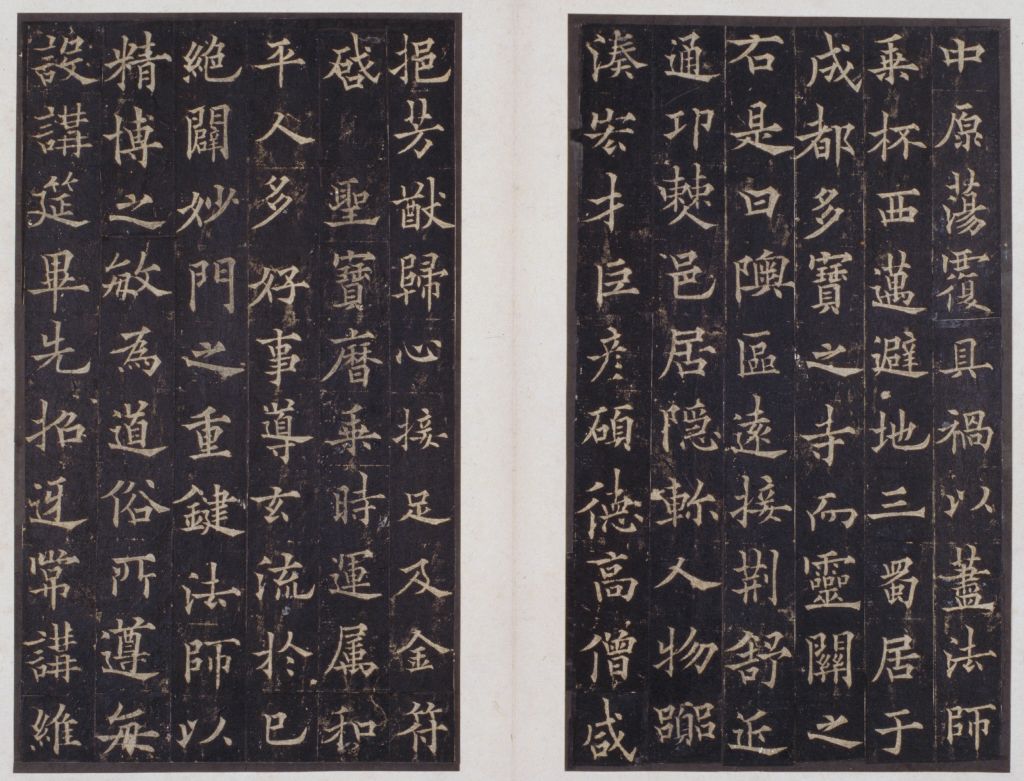 中原蕩覆具禍以藎法師
乗杯西邁避地三蜀居于
成都多寶之寺而靈關之
右是曰隩區遠接荆舒近
通卭僰邑居隠軫人物
湊宏才巨彦碩徳高僧咸
挹芳猷歸心接足及金符
啓 聖寶暦乗時運属和
平人多好事導玄流於已
絶闢妙門之重鍵法師以
精博之敏為道俗所遵每
設講筵畢先招迓常講維